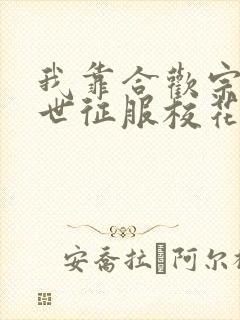 我靠合歡宗
世征服校花
安喬拉 阿尔